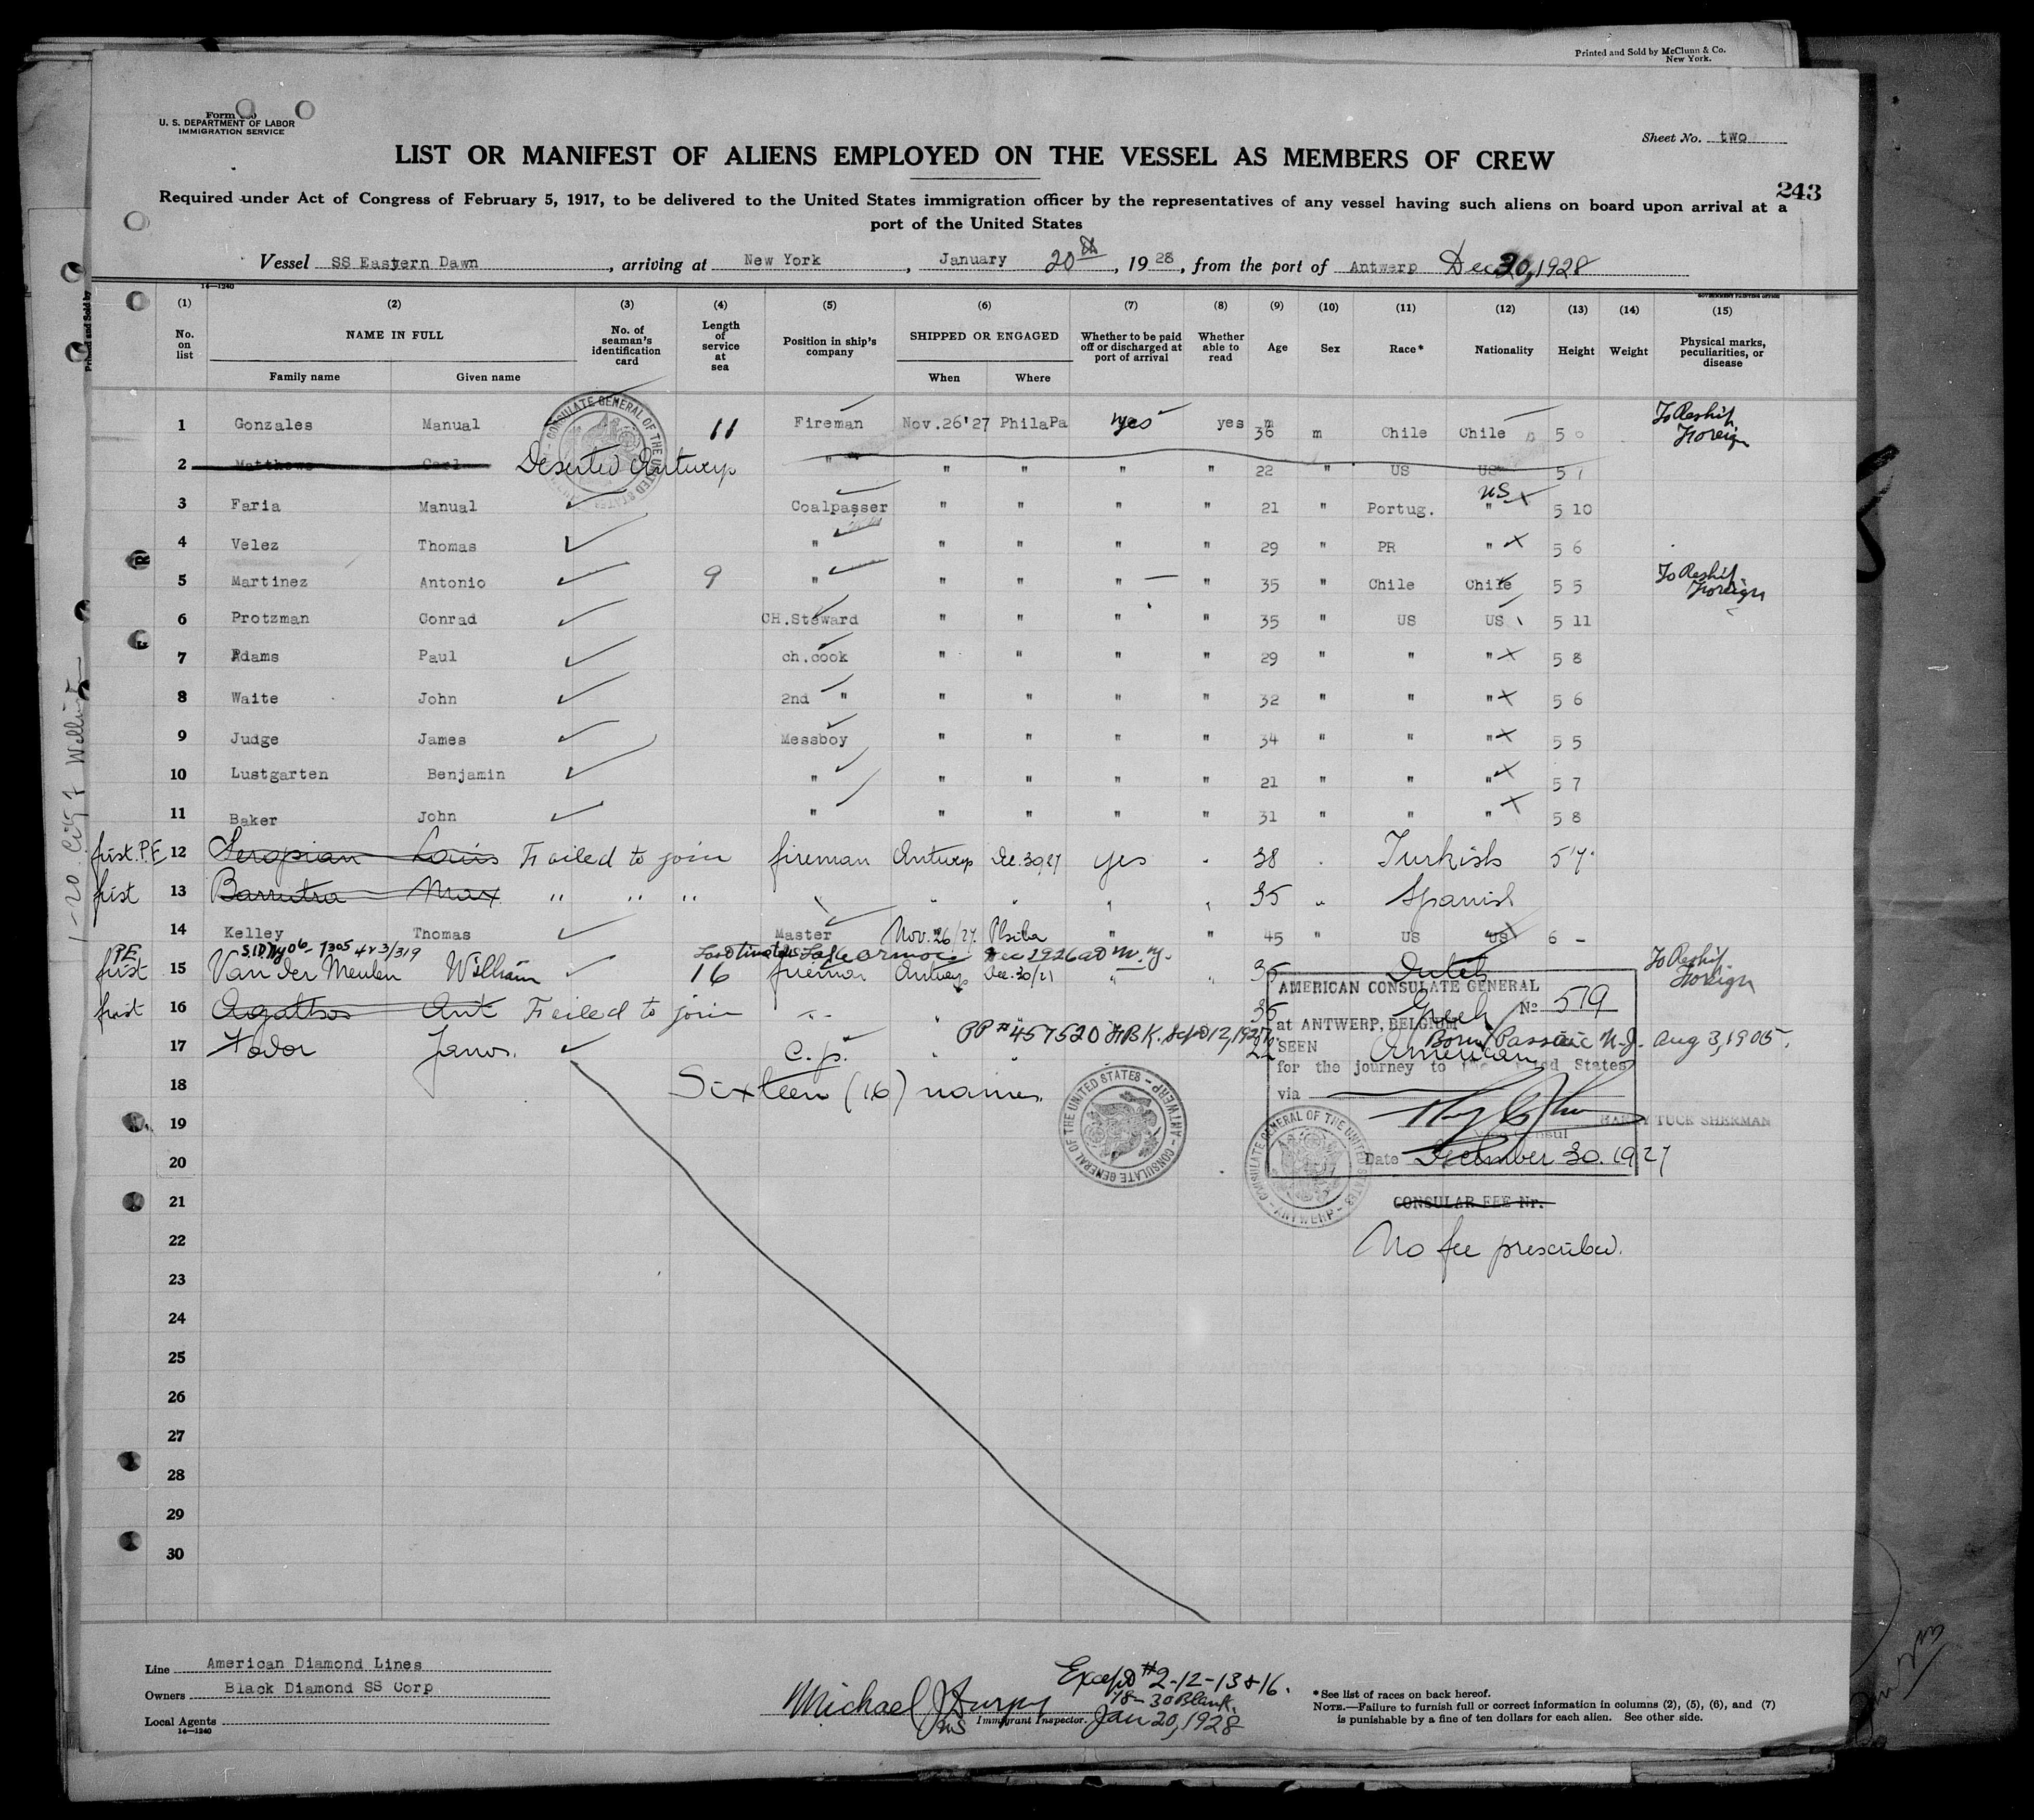 Printed and Sold by McClunn & Co.
New York.
Form
U. S. DEPARTMENT OF LABOR
IMMIGRATION SERVICE
Sheet No. two
LIST OR MANIFEST OF ALIENS EMPLOYED ON THE VESSEL AS MEMBERS OF CREW
243
Required under Act of Congress of February 5, 1917, to be delivered to the United States immigration officer by the representatives of any vessel having such aliens on board upon arrival at a
port of the United States
Vessel SS Eastern Dawn, arriving at New York, January 20th, 1928, from the port of Antwerp Dec 30, 1928
14—1240 GOVERNMENT PRINTING OFFICE
(1) (2) (3) (4) (5) (6) (7) (8) (9) (10) (11) (12) (13) (14) (15)
No. on list NAME IN FULL No. of seaman's identification card Length of service at sea Position in ship's company SHIPPED OR ENGAGED Whether to be paid off or discharged at port of arrival Whether able to read Age Sex Race* Nationality Height Weight Physical marks, peculiarities, or disease
Family name Given name When Where
1 Gonzales Manual 11 Fireman Nov.26'27 PhilaPa yes yes 36 m Chile Chile 5 0 To Reship Foreign
2 Matthews Carl Deserted Antwerp " " " " " 22 " US US 5 7
3 Faria Manual Coalpasser " " " " 21 " Portug. US " 5 10
4 Velez Thomas " " " " " 29 " PR " 5 6
5 Martinez Antonio 9 " " " " " 35 " Chile Chile 5 5 To Reship Foreign
6 Protzman Conrad CH.Steward " " " " 35 " US US 5 11
7 Adams Paul ch.cook " " " " 29 " " " 5 8
8 Waite John 2nd " " " " " 32 " " " 5 6
9 Judge James Messboy " " " " 34 " " " 5 5
10 Lustgarten Benjamin " " " " " 21 " " " 5 7
11 Baker John " " " " " 31 " " " 5 8
first P.E. 12 Seropian Louis Failed to join fireman Antwerp Dec.30,27 yes " 38 " Turkish 5'7"
first 13 Barrutra Max " " " " " " " " 35 " Spanish
14 Kelley Thomas Master Nov. 26/27. Phila " " 45 " US US 6 -
PE first 15 Van der Meulen William 16 fireman Antwerp Dec.30/27 " " 35 Dutch To Reship Foreign
first 16 Agathos Ant Failed to join " " 35 Greek
PP #457520 Sept 12, 1927 Born Passaic N.J. Aug 3, 1905.
17 Fodor Janos. C.p. " 22 American
18 Sixteen (16) names.
19
20
21
22
23
24
25
26
27
28
29
30
CONSULATE GENERAL OF THE UNITED STATES - ANTWERP -
AMERICAN CONSULATE GENERAL
No 519
at ANTWERP, BELGIUM
SEEN
for the journey to the United States
via
HARRY TUCK SHERMAN
Vice Consul
Date December 30. 1927
CONSULAR FEE Nr.
No fee prescribed.
Line American Diamond Lines
Owners Black Diamond SS Corp
Local Agents
14—1240
Except #2-12-13 & 16.
18-30 Blank.
Michael J. Immigrant Inspector. Jan 20, 1928
*See list of races on back hereof.
NOTE.—Failure to furnish full or correct information in columns (2), (5), (6), and (7)
is punishable by a fine of ten dollars for each alien. See other side.